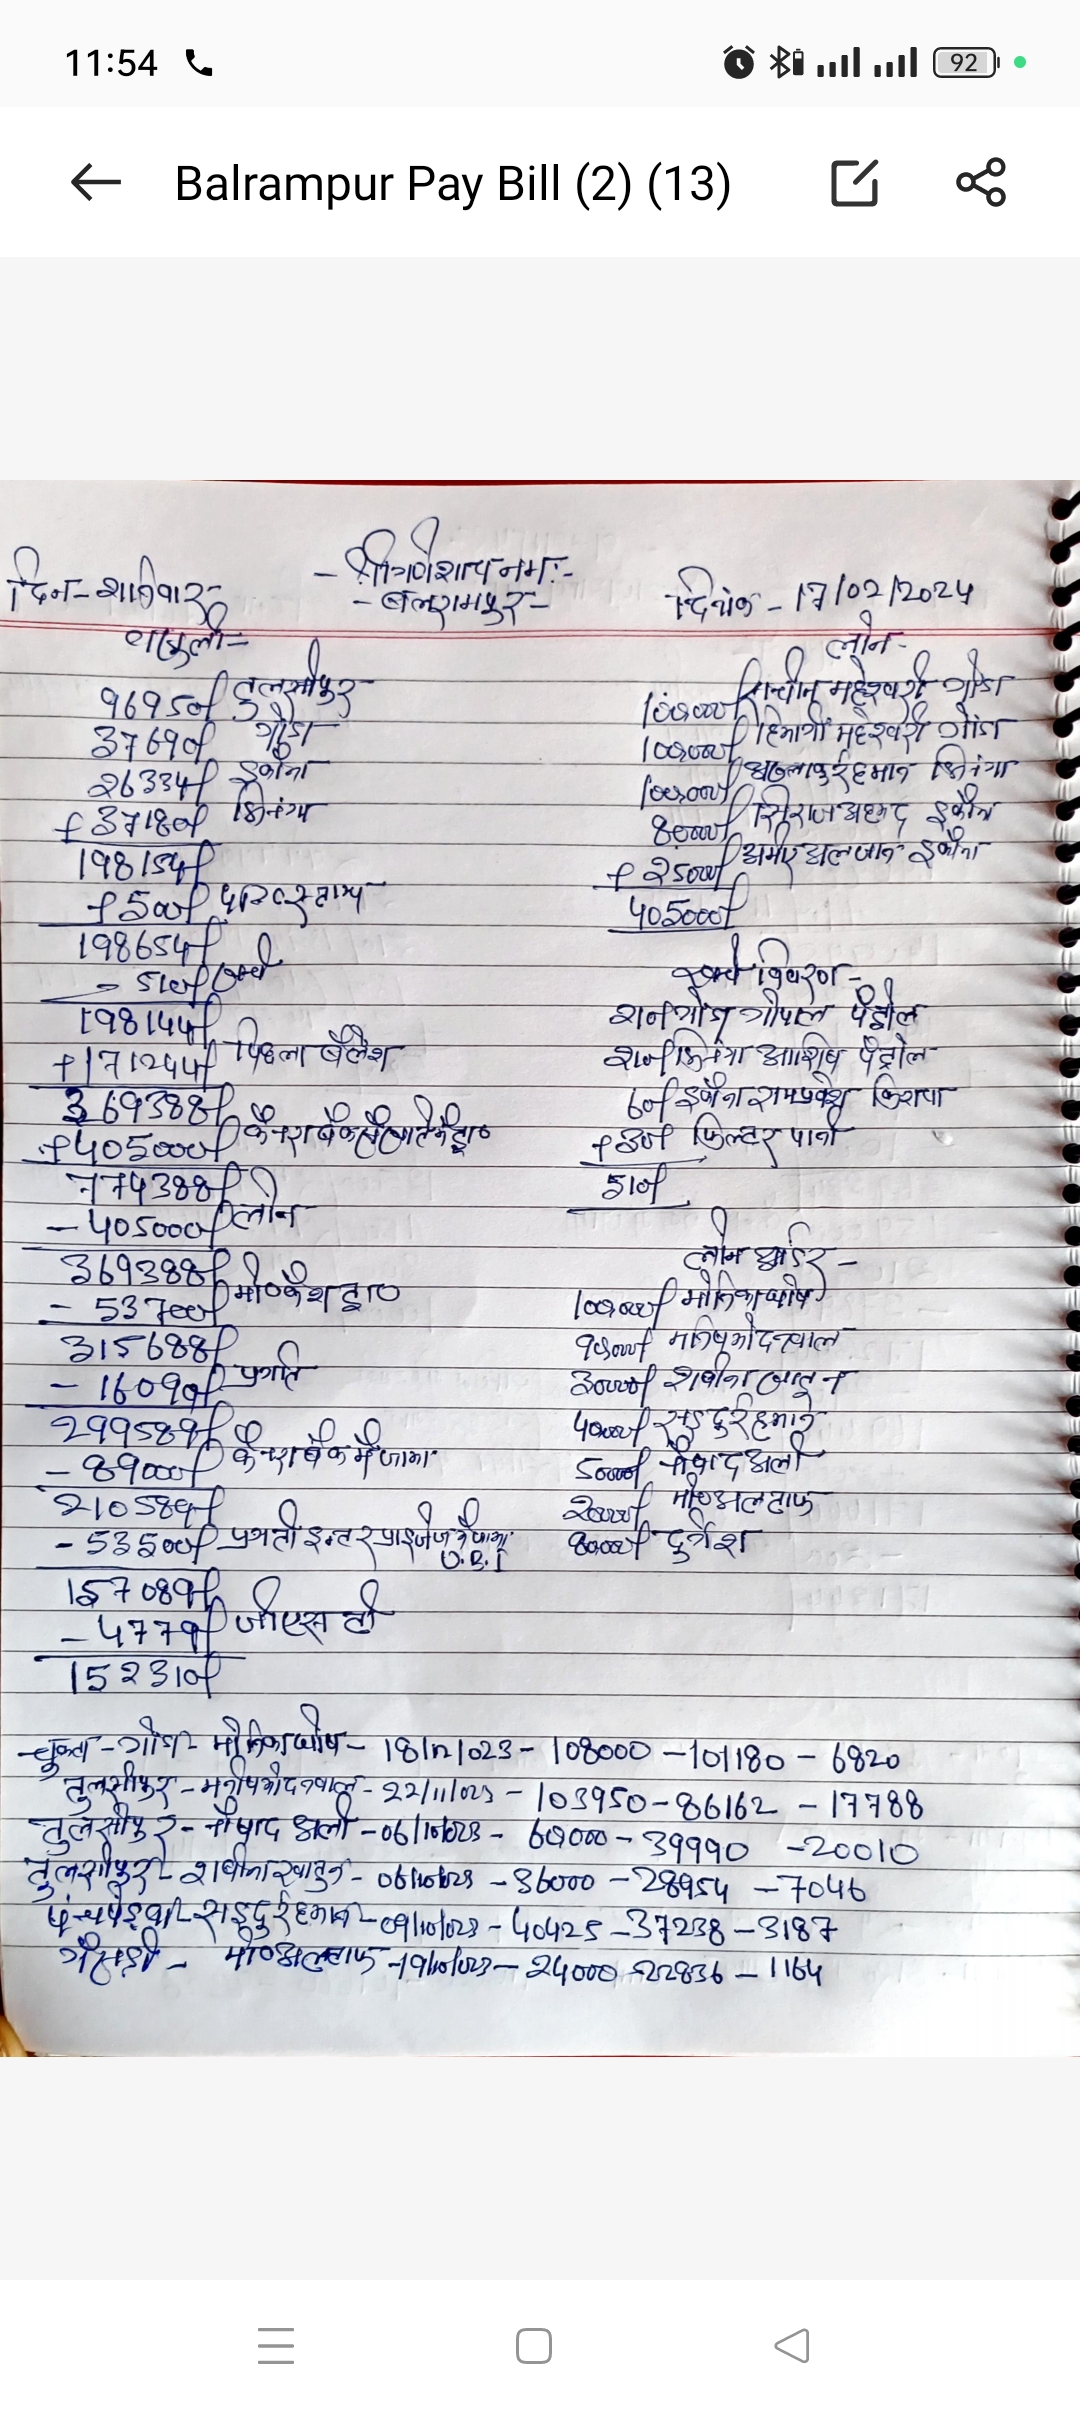 11:54
92
Balrampur Pay Bill (2) (13)
- श्री गणेशाय नमः -
दिन - शनिवार
- बलरामपुर -
दिनांक - 17/02/2024
वसुली -
96950/ तुलसीपुर
37690/ गोंडा
26334/ इकौना
+ 37180/ भिनगा
198154/
+ 500/
198654/
- 510/ खर्च
198144/
+ 171244/ पिछला बैलेंश
369388/
+ 405000/ केनरा बैंक
774388/
- 405000/ लोन
369388/
- 53700/ मो० कैश द्वारा
315688/
- 16099/ प्रगति
299589/
- 89000/ केनरा बैंक में जमा
210589/
- 53500/ प्रगती इन्टर प्राइजेज में जमा
U.B.I
157089/
- 4779/ जी एस टी
152310/
लोन -
100000/ सचीन महेश्वरी गोंडा
100000/ हिमानी महेश्वरी गोंडा
100000/ भिनगा
80000/ सिराज अहमद इकौना
+ 25000/ इकौना
405000/
खर्च विवरण -
गोपाल पेट्रोल
भिनगा आशिष पेट्रोल
60/ इकौना रामप्रवेश किराया
+ 30/ फिल्टर पानी
510/
लोन आर्डर -
100000/ मोनिका घोष
90000/ मनिष मोदनवाल
30000/ शबीना खातुन
40000/ सइदुर्रहमान
50000/ नौषाद अली
20000/ मो० अलताफ
80000/ दुर्गेश
चुकता - गोंडा - मोनिका घोष - 18/12/023 - 108000 - 101180 - 6820
तुलसीपुर - मनीष मोदनवाल - 22/11/023 - 103950 - 86162 - 17788
तुलसीपुर - नौषाद अली - 06/10/023 - 60000 - 39990 - 20010
तुलसीपुर - शबीना खातुन - 06/10/023 - 36000 - 28954 - 7046
पंचपेड़वा - सइदुर्रहमान - 09/10/023 - 40425 - 37238 - 3187
गैसड़ी - मो० अलताफ - 19/10/023 - 24000 - 22836 - 1164